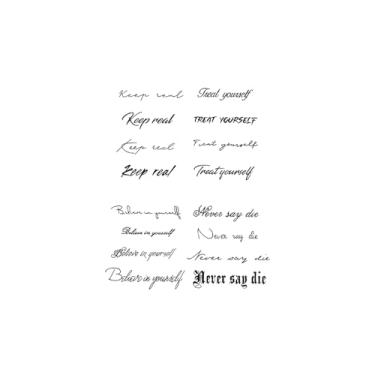 Keep real Treat yourself
Keep real TREAT YOURSELF
Keep real Treat yourself
Keep real Treat yourself
Believe in yourself Never say die
Believe in yourself Never say die
Believe in yourself Never say die
Believe in yourself Never say die